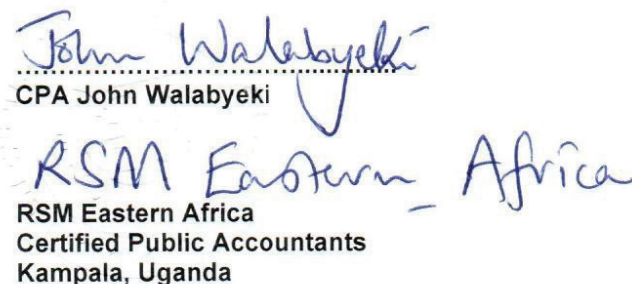 John Walabyeki
CPA John Walabyeki
RSM Eastern Africa
RSM Eastern Africa
Certified Public Accountants
Kampala, Uganda